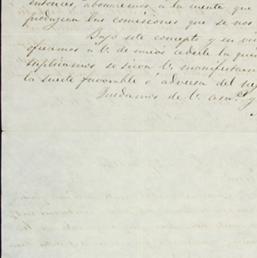 entonces, abonaremos á la cuenta que
produzcan las comisiones que se nos
Bajo este concepto y en vi
ofrecemos á V. de nuevo cederle la qui
suplicamos se sirva V. manifestarn
la suerte favorable ó adversa del neg
Quedamos de V. atmos. y